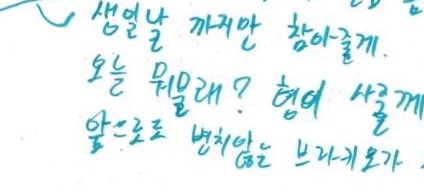 생일날 까지만 참아줄게.
오늘 뭐물래? 형이 사줄께
앞으로도 변치않는 브라키오가